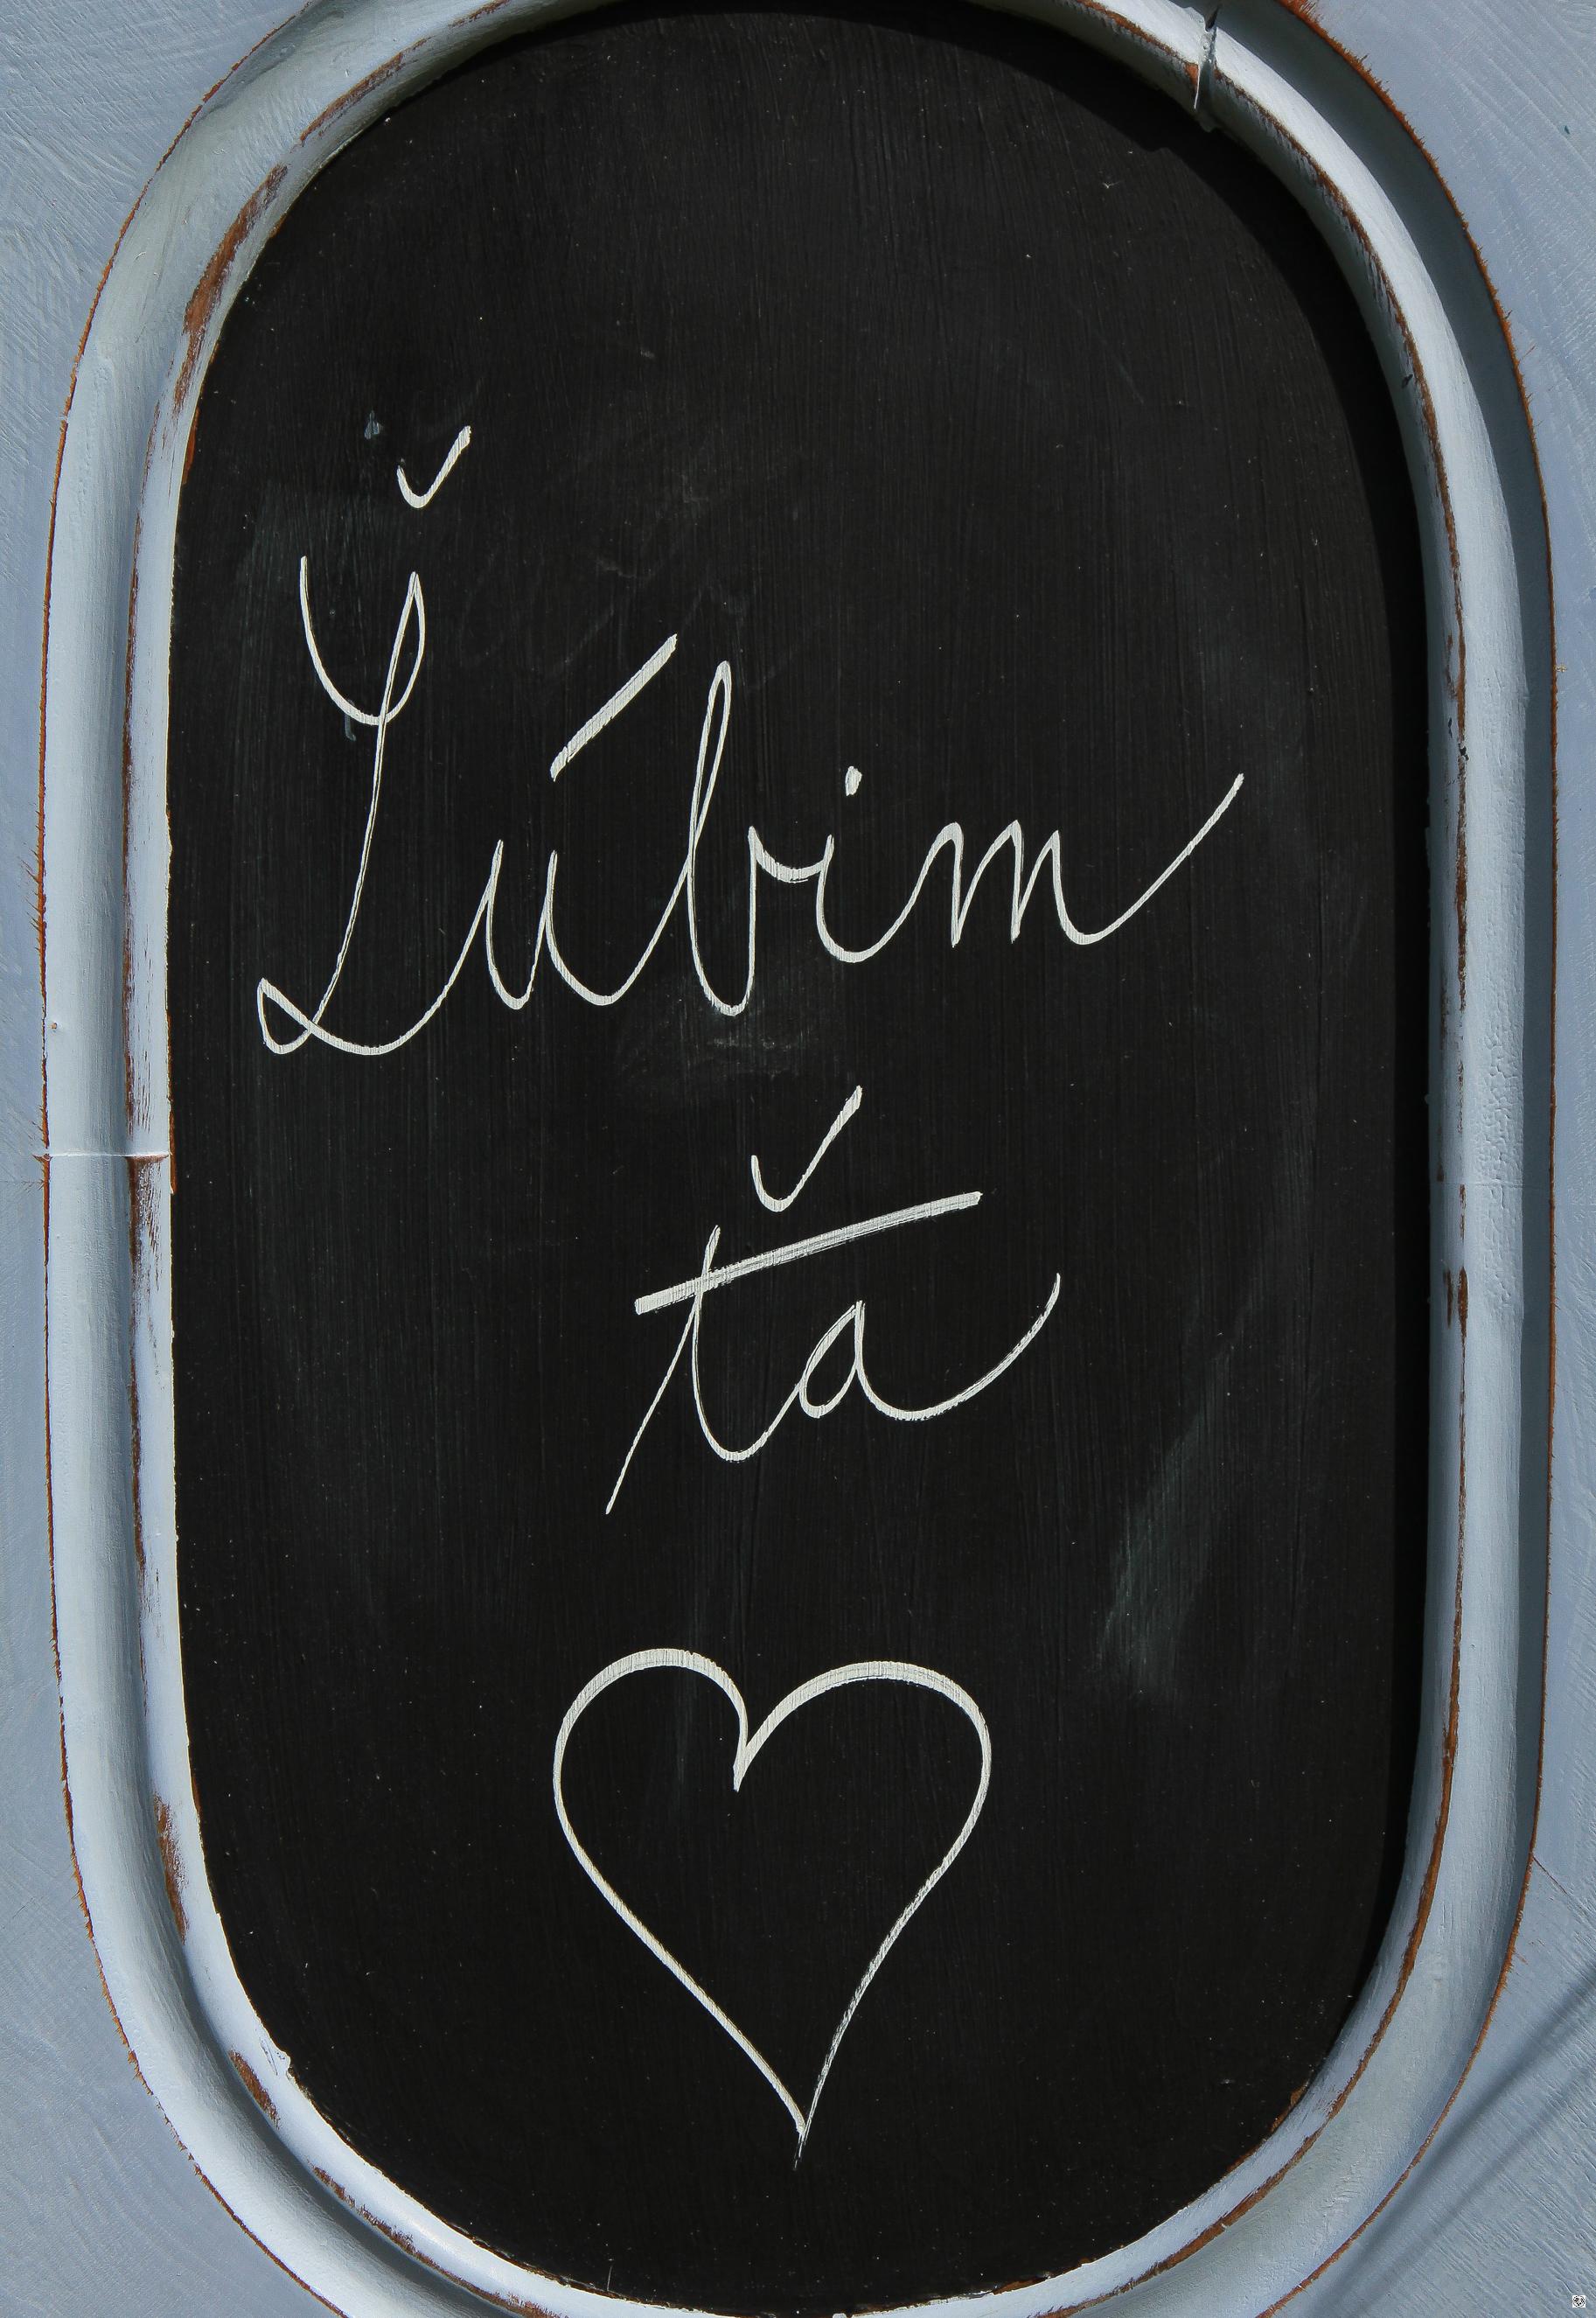 Ľúbim
ťa